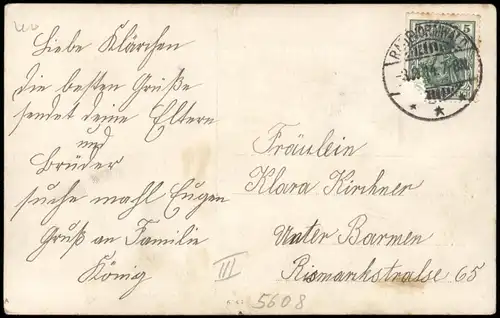 Liebe Klärchen
die besten Grüße
sendet deine Eltern
und
Brüder
suche mahl Eugen
Gruß an Familie
König
5
Fräulein
Klara Kirchner
Unter Barmen
Bismarkstralse 65
III
5608